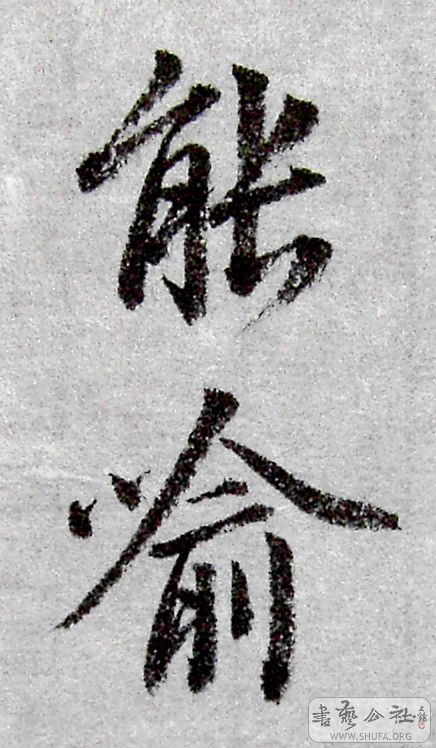 能喻
書藝公社
WWW.SHUFA.ORG